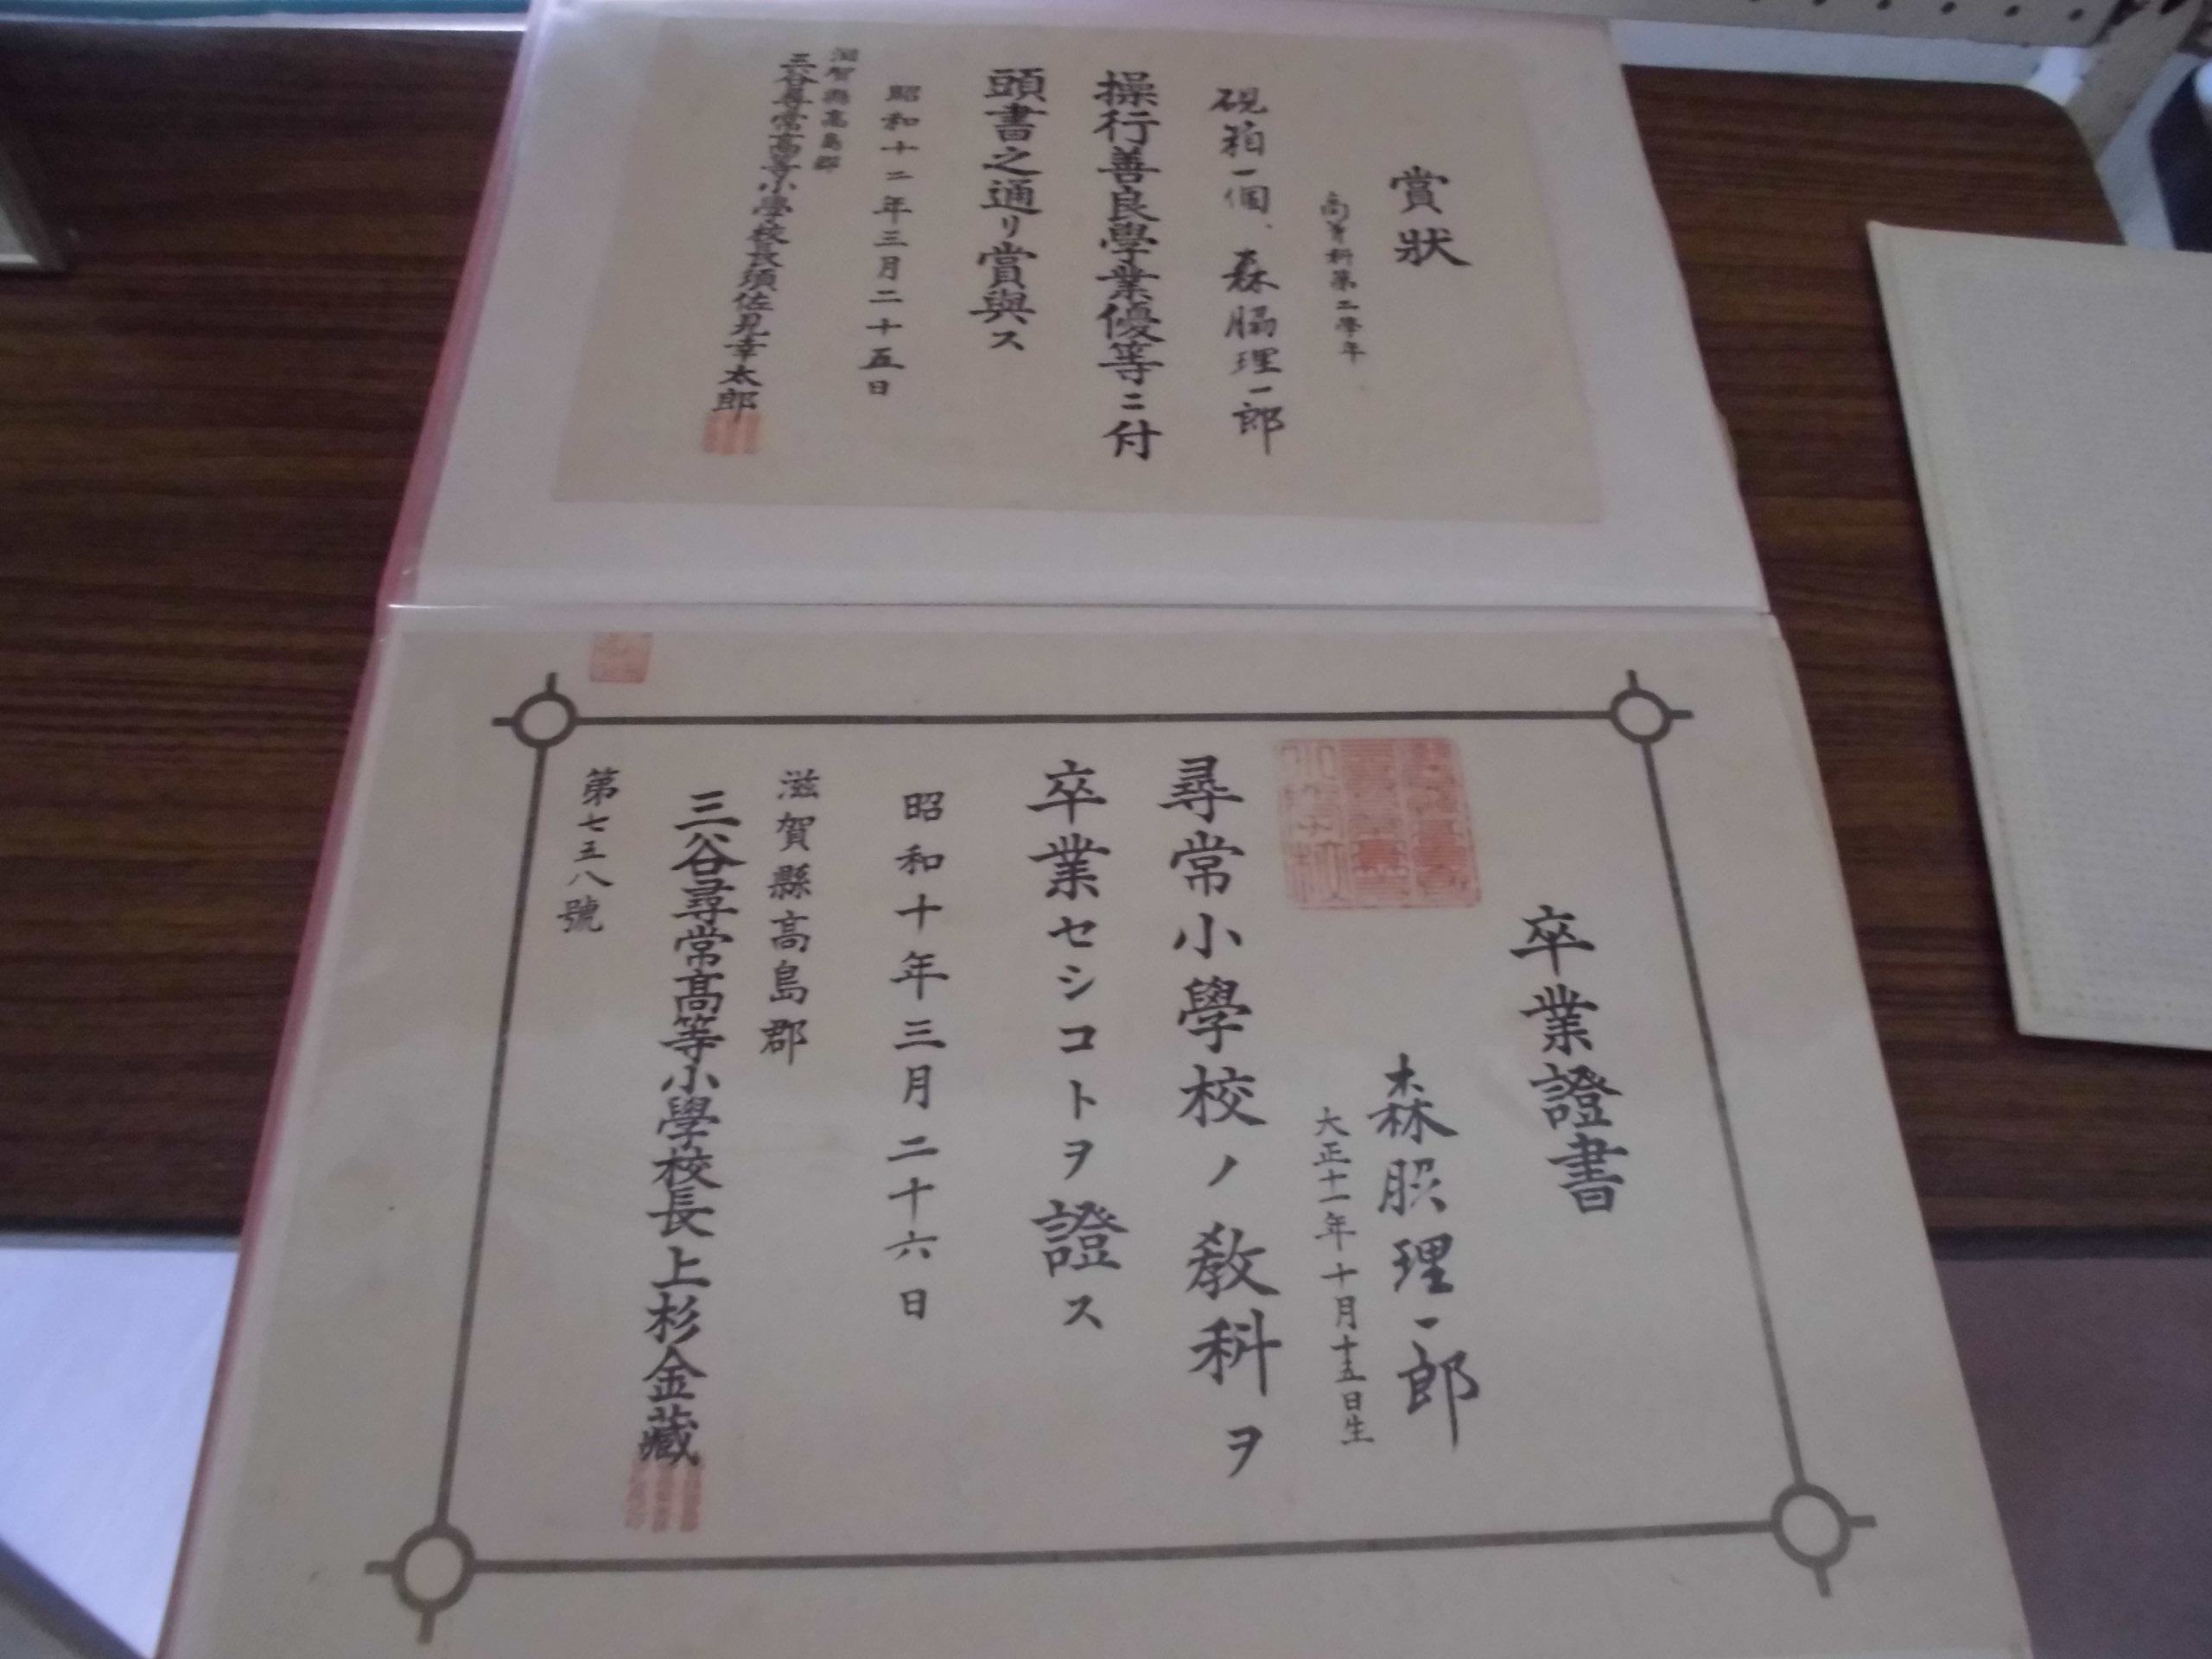 賞狀
高等科第二學年
硯箱一個、森脇理一郎
操行善良學業優等ニ付
頭書之通リ賞與ス
昭和十二年三月二十五日
滋賀縣高島郡
三谷尋常高等小學校長須佐見幸太郎
卒業證書
森脇理一郎
大正十一年十月十五日生
尋常小學校ノ教科ヲ
卒業セシコトヲ證ス
昭和十年三月二十六日
滋賀縣高島郡
三谷尋常高等小學校長上杉金藏
第七五八號